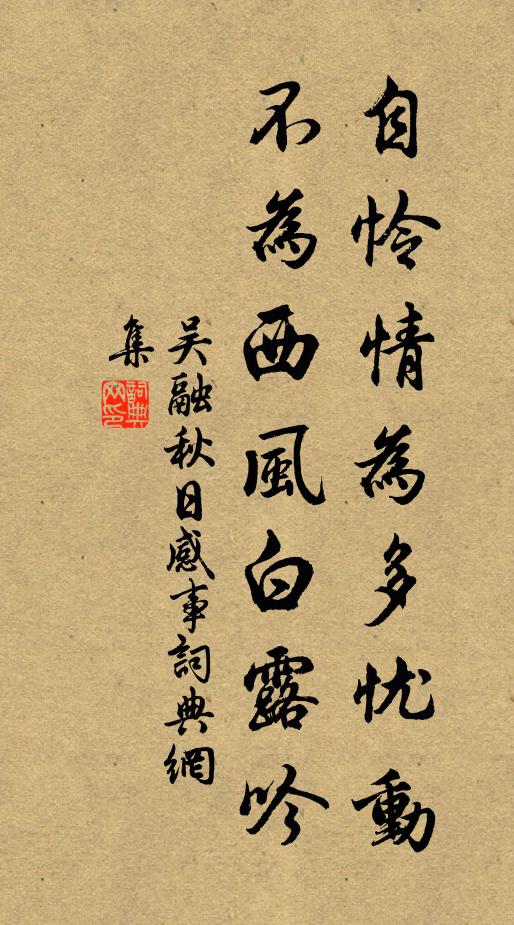 自怜情為多忧動
不為西風白露吟
吴融秋日感事詞典網
集
詞典
网印